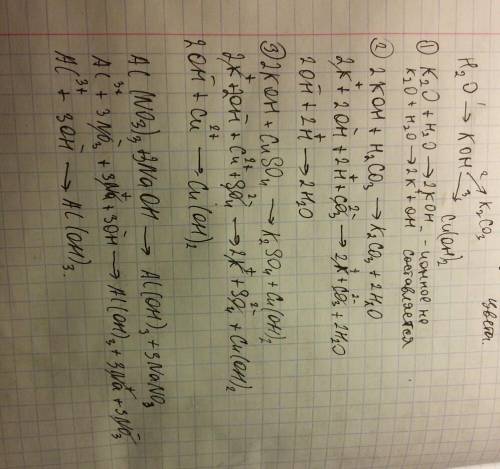 цвета.
H₂O → KOH ²↗ K₂CO₃
³↘ Cu(OH)₂
① K₂O + H₂O → 2KOH - ионное не
K₂O + H₂O → 2K⁺ + OH⁻ составляется
② 2KOH + H₂CO₃ → K₂CO₃ + 2H₂O
2K⁺ + 2OH⁻ + 2H⁺ + CO₃²⁻ → 2K⁺ + CO₃²⁻ + 2H₂O
2OH⁻ + 2H⁺ → 2H₂O
③ 2KOH + CuSO₄ → K₂SO₄ + Cu(OH)₂
2K⁺ + 2OH⁻ + Cu²⁺ + SO₄²⁻ → 2K⁺ + SO₄²⁻ + Cu(OH)₂
2OH⁻ + Cu²⁺ → Cu(OH)₂
Al(NO₃)₃ + 3NaOH → Al(OH)₃ + 3NaNO₃
Al³⁺ + 3NO₃⁻ + 3Na⁺ + 3OH⁻ → Al(OH)₃ + 3Na⁺ + 3NO₃⁻
Al³⁺ + 3OH⁻ → Al(OH)₃.